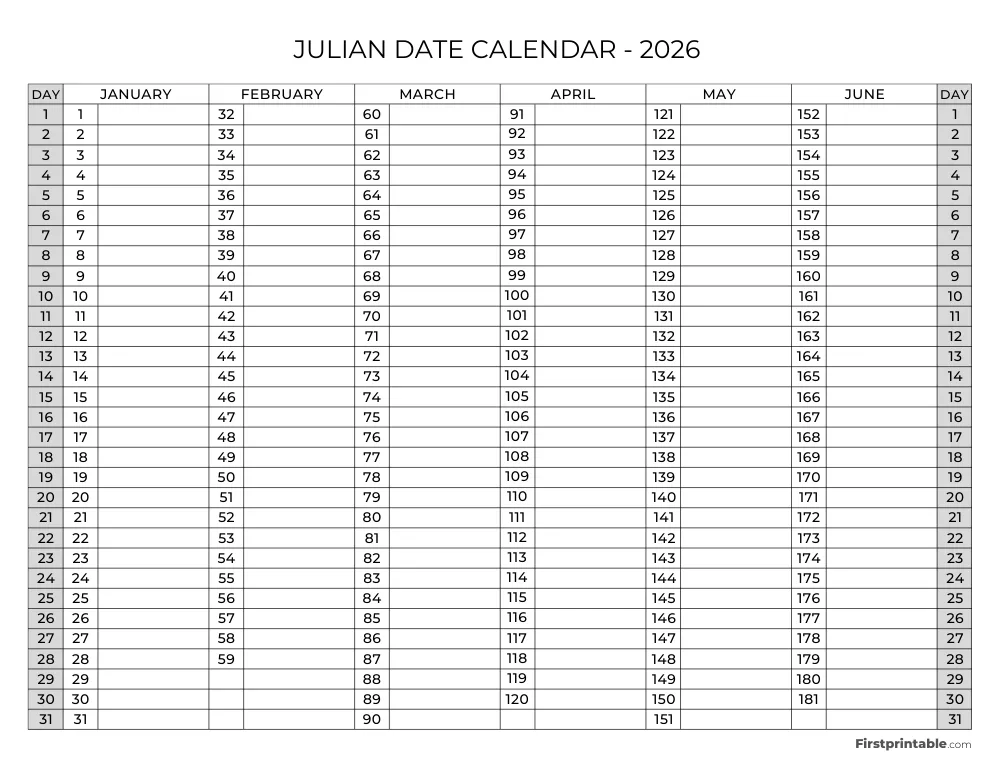 JULIAN DATE CALENDAR - 2026
DAY JANUARY FEBRUARY MARCH APRIL MAY JUNE DAY
1 1 32 60 91 121 152 1
2 2 33 61 92 122 153 2
3 3 34 62 93 123 154 3
4 4 35 63 94 124 155 4
5 5 36 64 95 125 156 5
6 6 37 65 96 126 157 6
7 7 38 66 97 127 158 7
8 8 39 67 98 128 159 8
9 9 40 68 99 129 160 9
10 10 41 69 100 130 161 10
11 11 42 70 101 131 162 11
12 12 43 71 102 132 163 12
13 13 44 72 103 133 164 13
14 14 45 73 104 134 165 14
15 15 46 74 105 135 166 15
16 16 47 75 106 136 167 16
17 17 48 76 107 137 168 17
18 18 49 77 108 138 169 18
19 19 50 78 109 139 170 19
20 20 51 79 110 140 171 20
21 21 52 80 111 141 172 21
22 22 53 81 112 142 173 22
23 23 54 82 113 143 174 23
24 24 55 83 114 144 175 24
25 25 56 84 115 145 176 25
26 26 57 85 116 146 177 26
27 27 58 86 117 147 178 27
28 28 59 87 118 148 179 28
29 29 88 119 149 180 29
30 30 89 120 150 181 30
31 31 90 151 31
Firstprintable.com